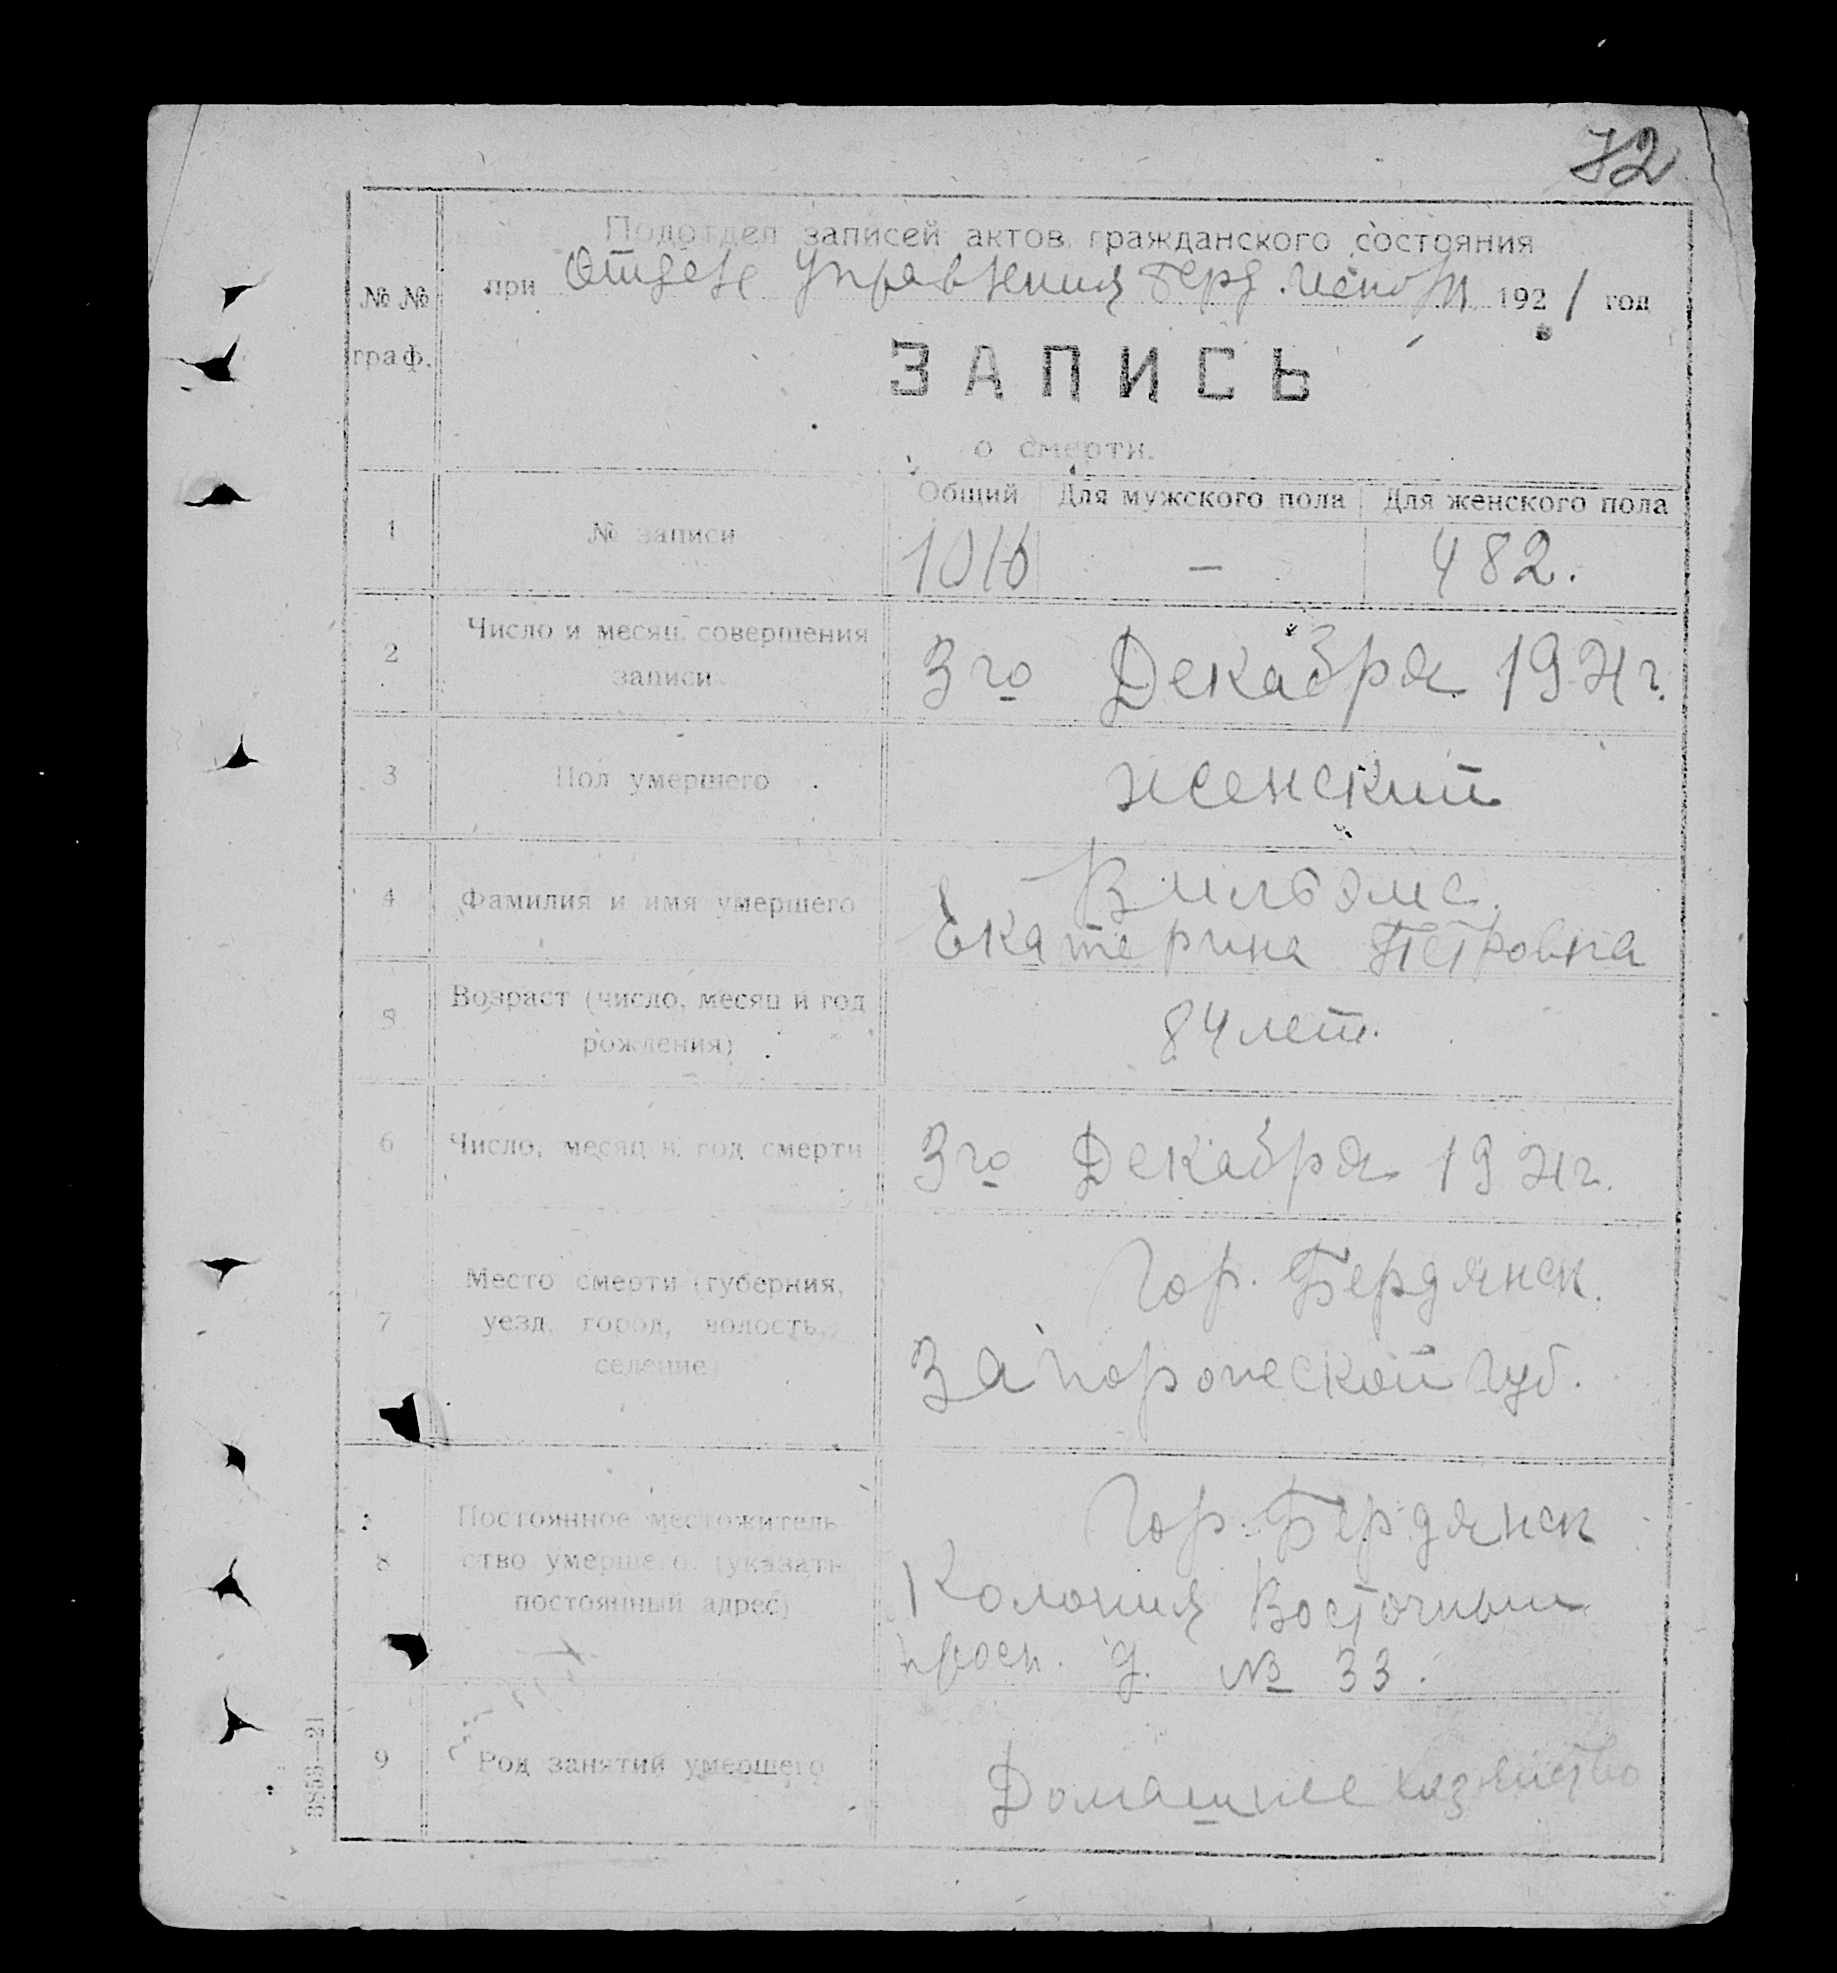 72
Подотдел записей актов гражданского состояния
№ №
граф.
при Отделе Управления Берд. Исполк 1921 год
ЗАПИСЬ
о смерти.
Общий Для мужского пола Для женского пола
1 № записи 1016 — 482.
2 Число и месяц совершения
записи
3го Декабря 1921г.
3 Пол умершего женский
4 Фамилия и имя умершего
Вильвмс.
Екатерина Петровна
5 Возраст (число, месяц и год
рождения)
84 лет.
6 Число, месяц и год смерти 3го Декабря 1921г.
7 Место смерти (губерния,
уезд, город, волость,
селение)
Гор. Бердянск.
Запорожской губ.
8 Постоянное местожитель
ство умершего (указать
постоянный адрес)
Гор. Бердянск
Колония Восточный
просп. д. № 33.
9 Род занятий умершего Домашнее хозяйство
3858—21